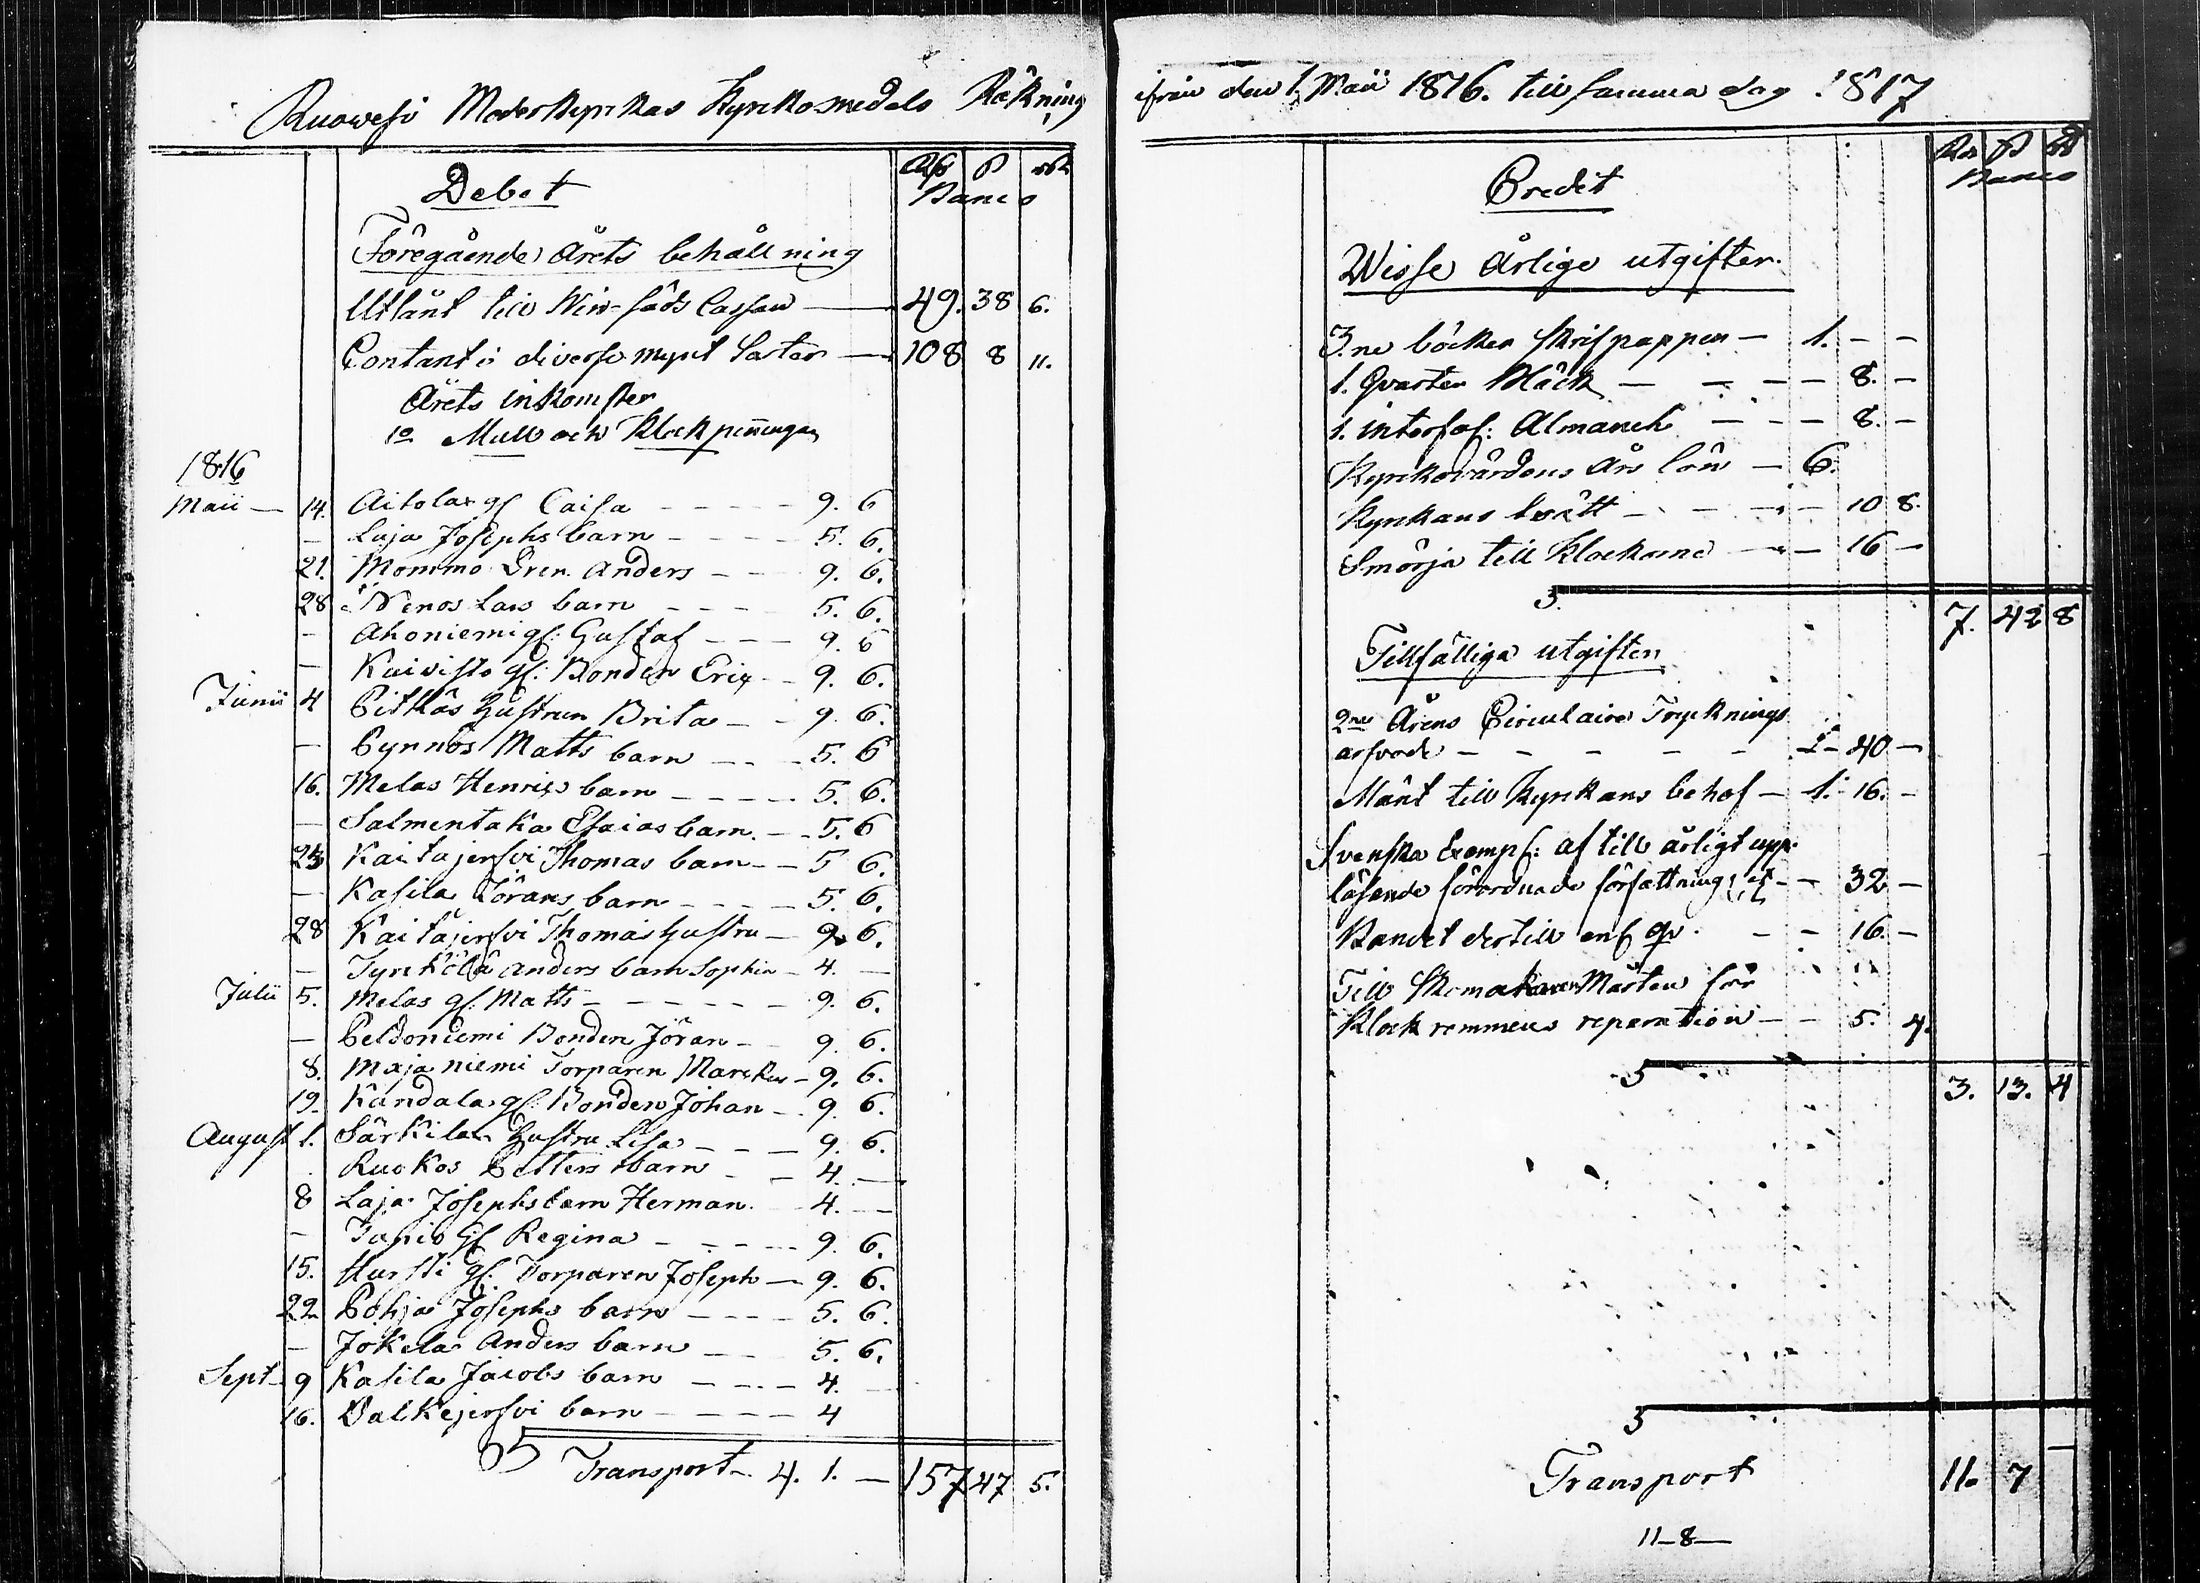 Ruowesi Moderkyrkas Kyrkomedels Räkning
Debet
Rdr ß rst
Banco
Föregående Årets behållning
Utlånt till Nöd-säds Cassan — 49. 38 6.
Contant i diverse mynt Sorter — 108 8 11.
Årets inkomster
1o Mull och Klockpenningar
1816
Maii — 14. Aitolax gl Caisa - - - - 9. 6
— Laja Josephs barn - - - - 5. 6.
21. Mommo Dren Anders - - - 9. 6.
28 Nenos Lars barn - - - 5. 6.
— Ahoniemi gl: Gustaf - - - 9. 6
— Kuivisto gl: Bonden Eric - - 9. 6.
Junii 4 Pitkäs Hustrun Brita - - 9. 6.
— Pynnös Matts barn - - - 5. 6
16. Melas Henrics barn - - - - 5. 6.
— Salmentaka Esaias barn. - - 5. 6
23 Kaitajerfvi Thomas barn - - 5 6.
— Kasila Jörans barn - - - - 5. 6.
28 Kaitajerfvi Thomas Hustru — 9. 6.
— Tyrkölä Anders barn Sophia - 4. —
Julii 5. Melas gl: Matts - - - - - - 9. 6.
— Peldoniemi Bonden Jöran - - 9. 6.
8. Majaniemi Torparen Marckus - 9. 6.
19. Kandala gl: Bonden Johan - - 9. 6.
August 1. Särkilax Hustru Lisa - - - 9. 6.
Ruokos Petters barn - - 4. —
8 Laja Josephs barn Herman. - 4. —
— Tapio gl Regina - - - - - 9. 6.
15. Hursti gl: Torparen Joseph — 9. 6.
22 Pohja Josephs barn - - - - 5. 6.
— Jokela Anders barn - - - 5. 6.
Sept. 9 Kasila Jacobs barn - - - - 4. —
16. Valkejerfvi barn - - - - - 4
Transport - 4. 1. — 157 47 5.
ifrån den 1. Maii 1816. till samma dag 1817
Credit
Rdr ß rst
Banco
Wisse Årlige utgifter.
3.ne böcker skrifpapper — 1. - -
1. Qvarter Bläck — - - - 8. -
1. interfol: Almanch - - - 8. -
Kyrkovärdens Års lön — 6.
Kyrkans tvätt - - - - - 10 8.
Smörja till Klockorne - - - 16 -
7. 42 8
Tillfälliga utgifter
2ne Årens Circulaire Trycknings
arfvode - - - - - - 40 —
Månt till Kyrkans behof — 1. 16. -
Svenska Exempl: af till årligt upp-
läsande förordnade författning - - 32 —
Bandet dertill enl qv. - - 16. -
Till Skomakaren Mårten för
Klock remmens reparation - - 5. 4.
3. 13. 4
Transport 11. 7 —
11–8—